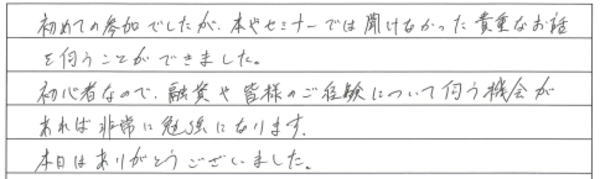 初めての参加でしたが、本やセミナーでは聞けなかった貴重なお話
を伺うことができました。
初心者なので、融資や皆様のご経験について伺う機会が
あれば非常に勉強になります。
本日はありがとうございました。